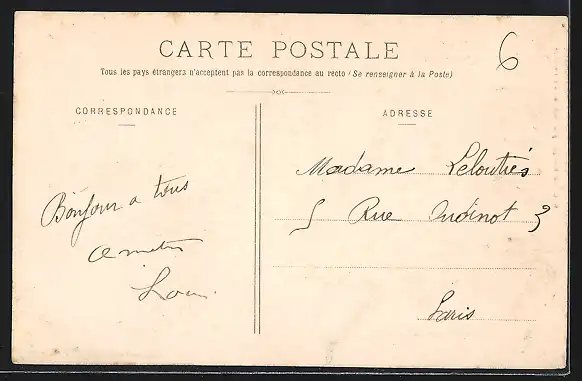 6
CARTE POSTALE
Tous les pays étrangers n'acceptent pas la correspondance au recto (Se renseigner à la Poste)
CORRESPONDANCE
ADRESSE
Bonjour a tous
Madame
Rue Oudinot
Paris